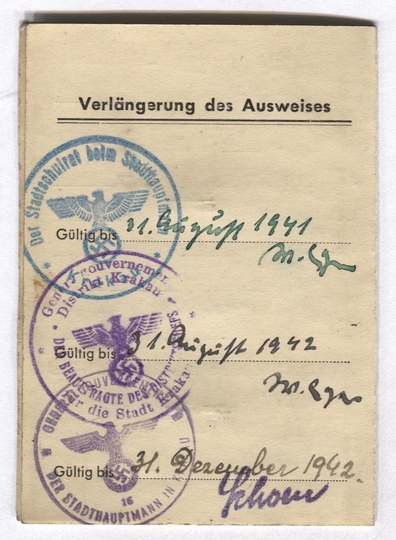 Verlängerung des Ausweises
Der Stadtschulrat beim Stadthauptm
Gültig bis 31. August 1941
Generalgouvernemen
Distrikt Krakau
Gültig bis 31. August 1942
DER BEAUFTRAGTE DES DISTRIKTSCHEFS
für die Stadt Kraka
Gültig bis 31. Dezember 1942.
16
DER STADTHAUPTMANN IN K AU